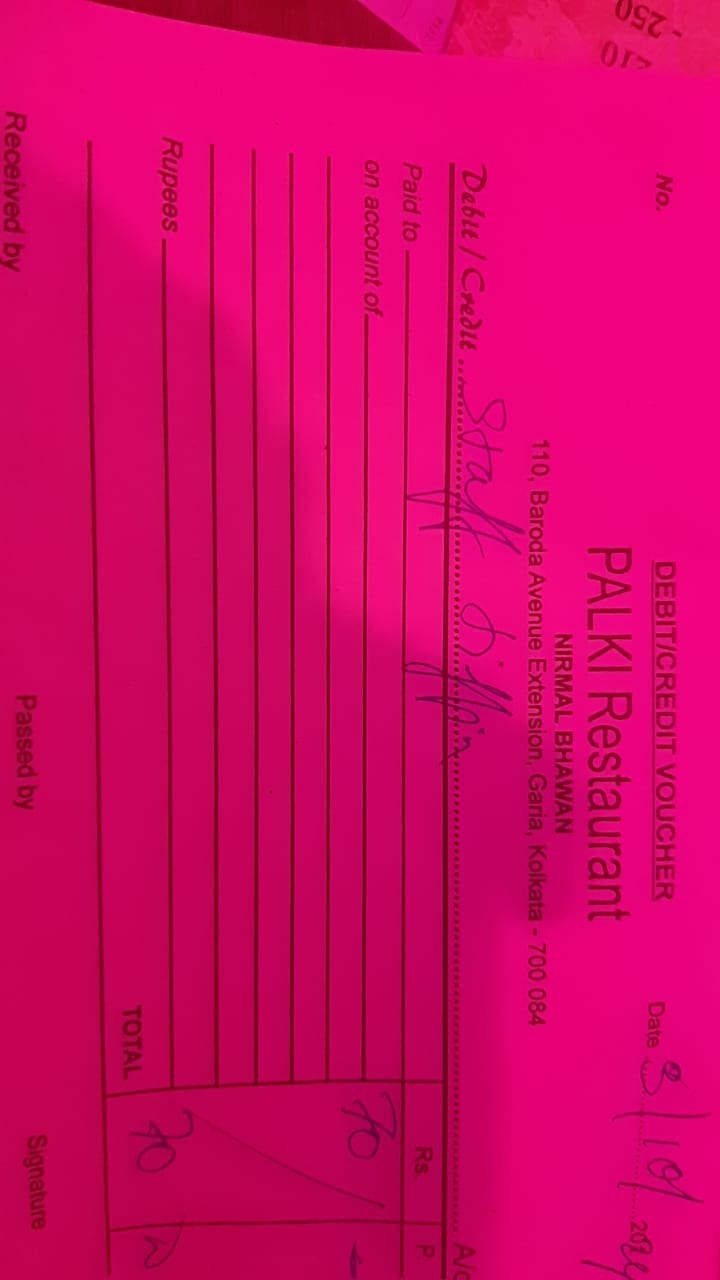 - 250
DEBIT/CREDIT VOUCHER
No.
Date 3/10/2024
PALKI Restaurant
NIRMAL BHAWAN
110, Baroda Avenue Extension, Garia, Kolkata - 700 084
Debit / Credit Staff tiffin A/c
Rs. P
Paid to 70
on account of
Rupees
TOTAL 70
Received by Passed by Signature